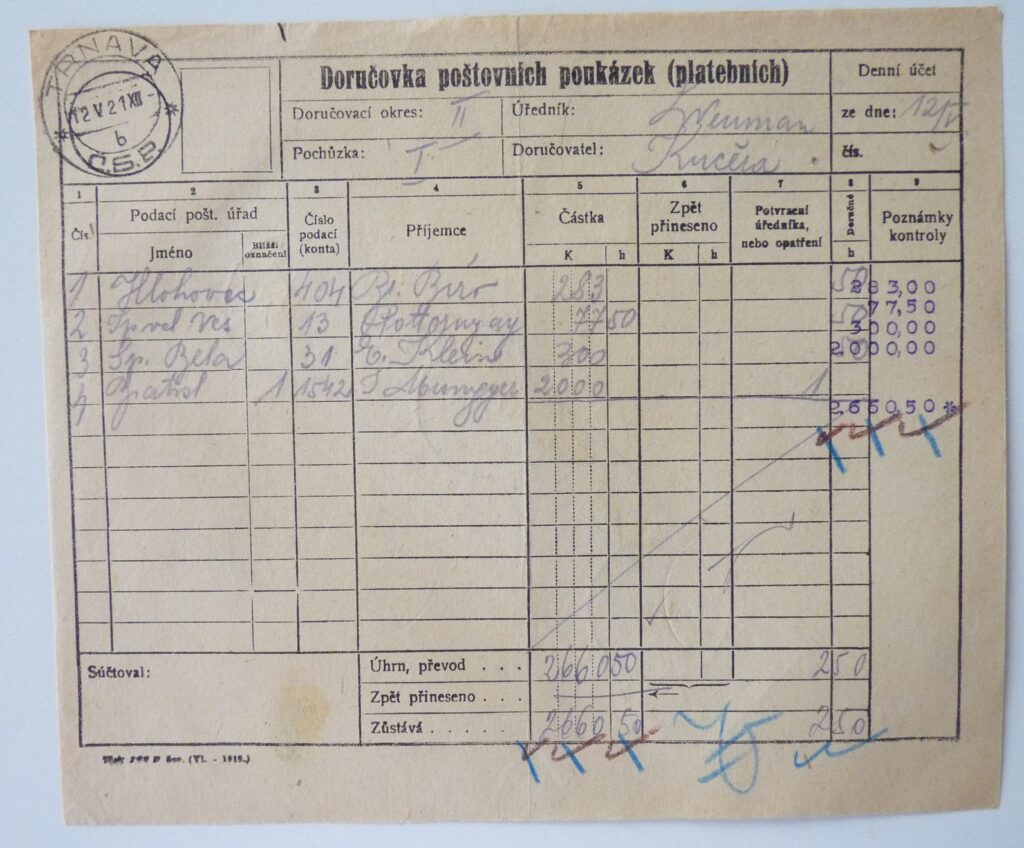 TRNAVA
12 V 21 XII
b
Č.S.P.
Doručovka poštovních poukázek (platebních)
Denní účet
Doručovací okres: II
Úředník:
ze dne: 12/V
Pochůzka: I
Doručovatel: Kučera
čís.
1 2 3 4 5 6 7 8 9
Čís.
Podací pošt. úřad
Jméno
Bližší označení
Číslo podací (konta)
Příjemce
Částka
K h
Zpět přineseno
K h
Potvrzení úředníka, nebo opatření
Doručné
h
Poznámky kontroly
1 Hlohovec 404 283 50 283,00
2 13 77 50 50 77,50
3 Sp. Bela 31 E. Klein 300 300,00
2.000,00
4 1 1542 2000 1
2.660,50 *
Súčtoval:
Úhrn, převod . . . 2660 50 2 50
Zpět přineseno . . .
Zůstává . . . . . 2660 50 2 50
(VI. - 1919.)